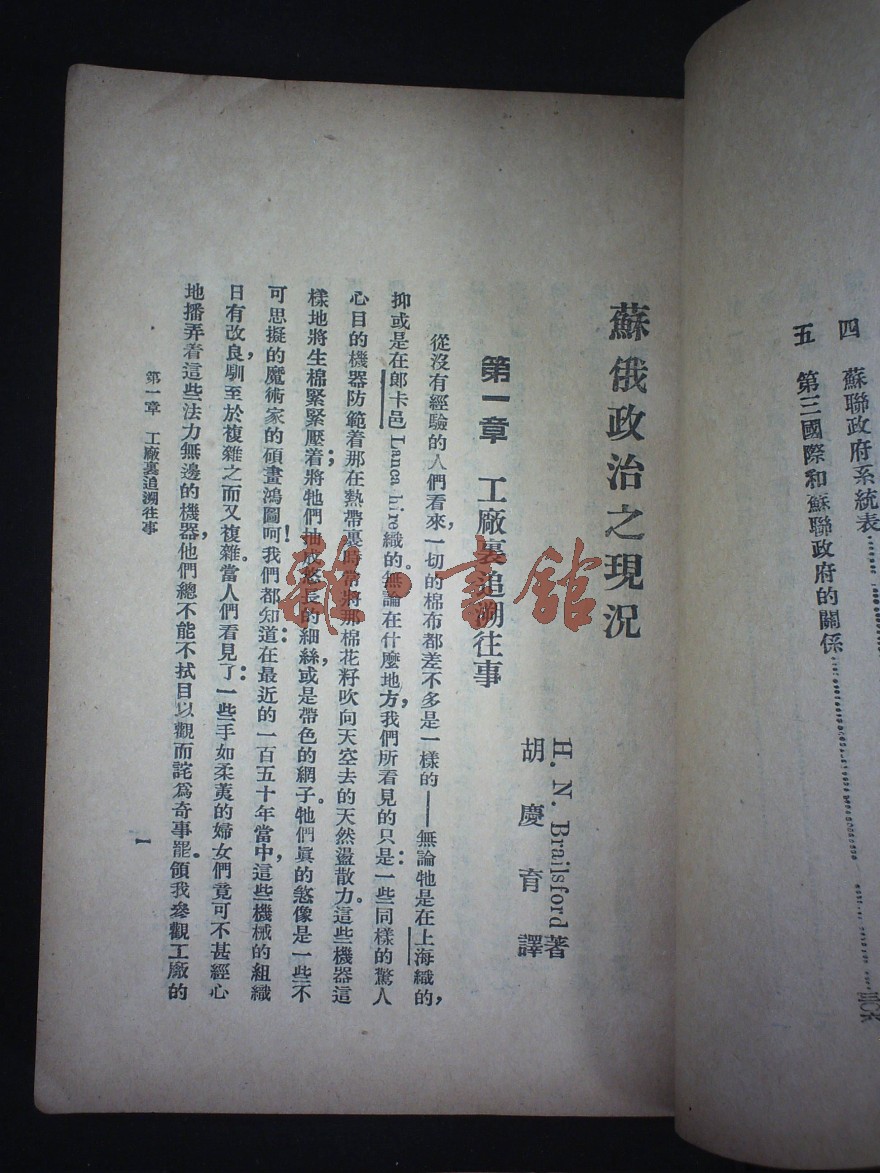 四 蘇聯政府系統表
五 第三國際和蘇聯政府的關係 三〇六
蘇俄政治之現況
H. N. Brailsford 著
胡慶育 譯
第一章 工廠裏追溯往事
從沒有經驗的人們看來,一切的棉布都差不多是一樣的——無論牠是在上海織的,
抑或是在郎卡邑 Lanca hire織的。無論在什麼地方,我們所看見的只是:一些同樣的驚人
心目的機器防範着那在熱帶裏時常將那棉花籽吹向天空去的天然盪散力。這些機器這
樣地將生棉緊緊壓着;將牠們抽成悠長的細絲或是帶色的網子。牠們眞的煞像是一些不
可思擬的魔術家的碩畫鴻圖呵!我們都知道:在最近的一百五十年當中,這些機械的組織
日有改良,馴至於複雜之而又複雜。當人們看見了:一些手如柔荑的婦女們竟可不甚經心
地播弄着這些法力無邊的機器,他們總不能不拭目以觀而詫爲奇事罷。領我參觀工廠的
第一章 工廠裏追溯往事
1
雜·書館